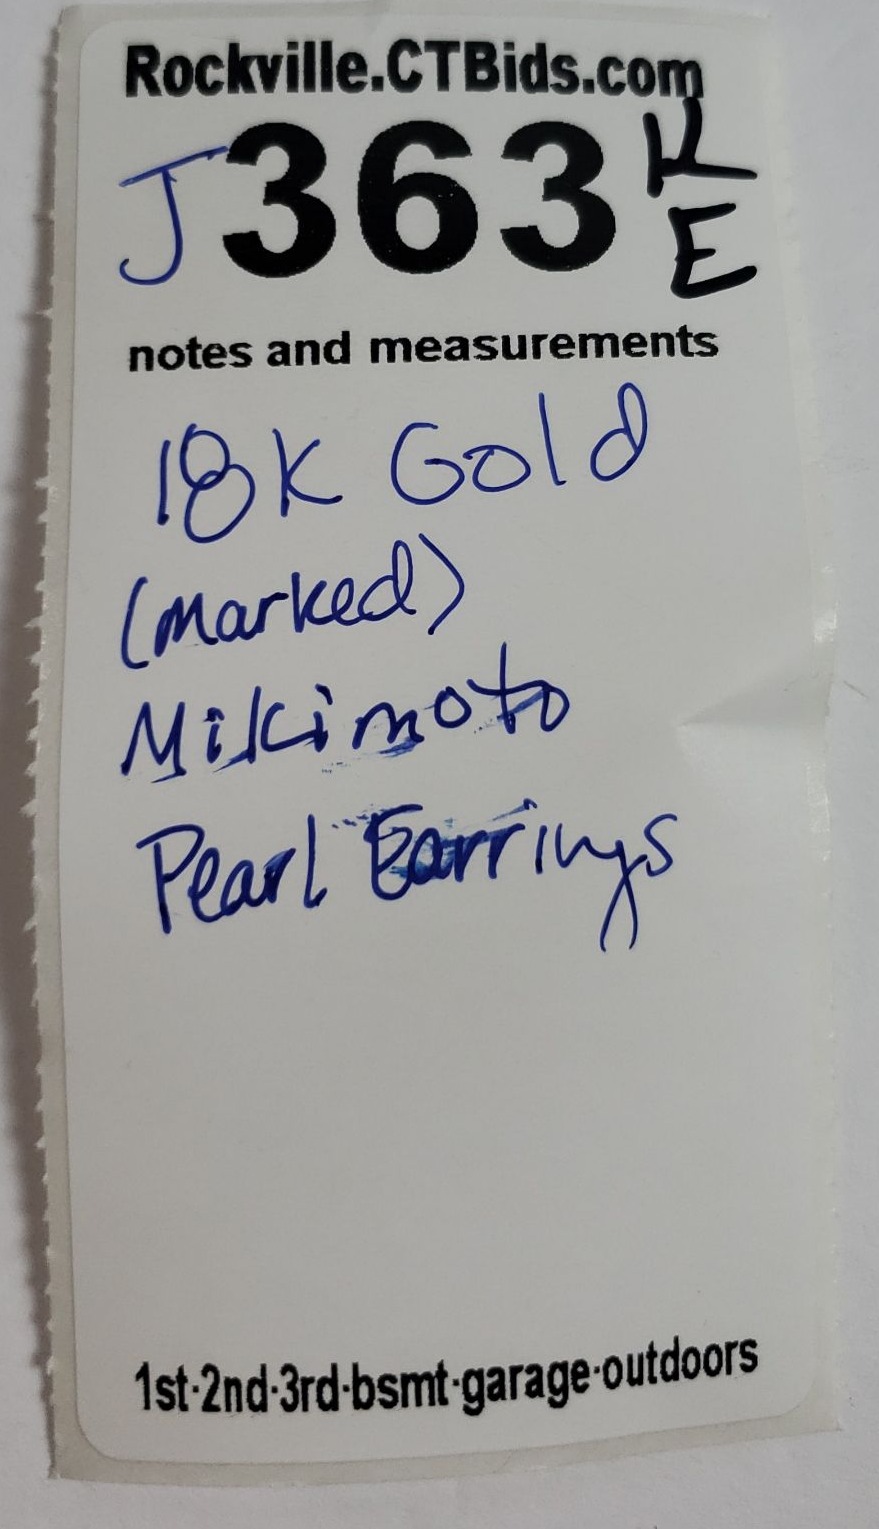 Rockville.CTBids.com
J363 KE
notes and measurements
18K Gold
(marked)
Mikimoto
Pearl Earrings
1st·2nd·3rd·bsmt·garage·outdoors